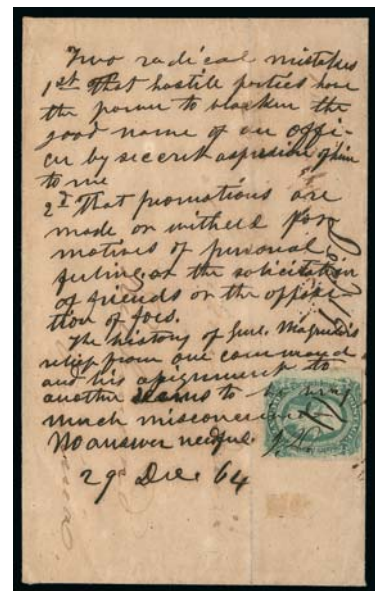 Two radical mistakes
1st That hostile parties have
the power to blacken the
good name of an offi-
cer by secret aspersion of him
to me
2d That promotions are
made or witheld from
motives of personal
feeling or the solicitation
of friends or the opposi-
tion of foes.
The history of Genl. Magruder's
relief from one command
and his assignment to
another seems to
much
No answer needful.
29 Dec 64